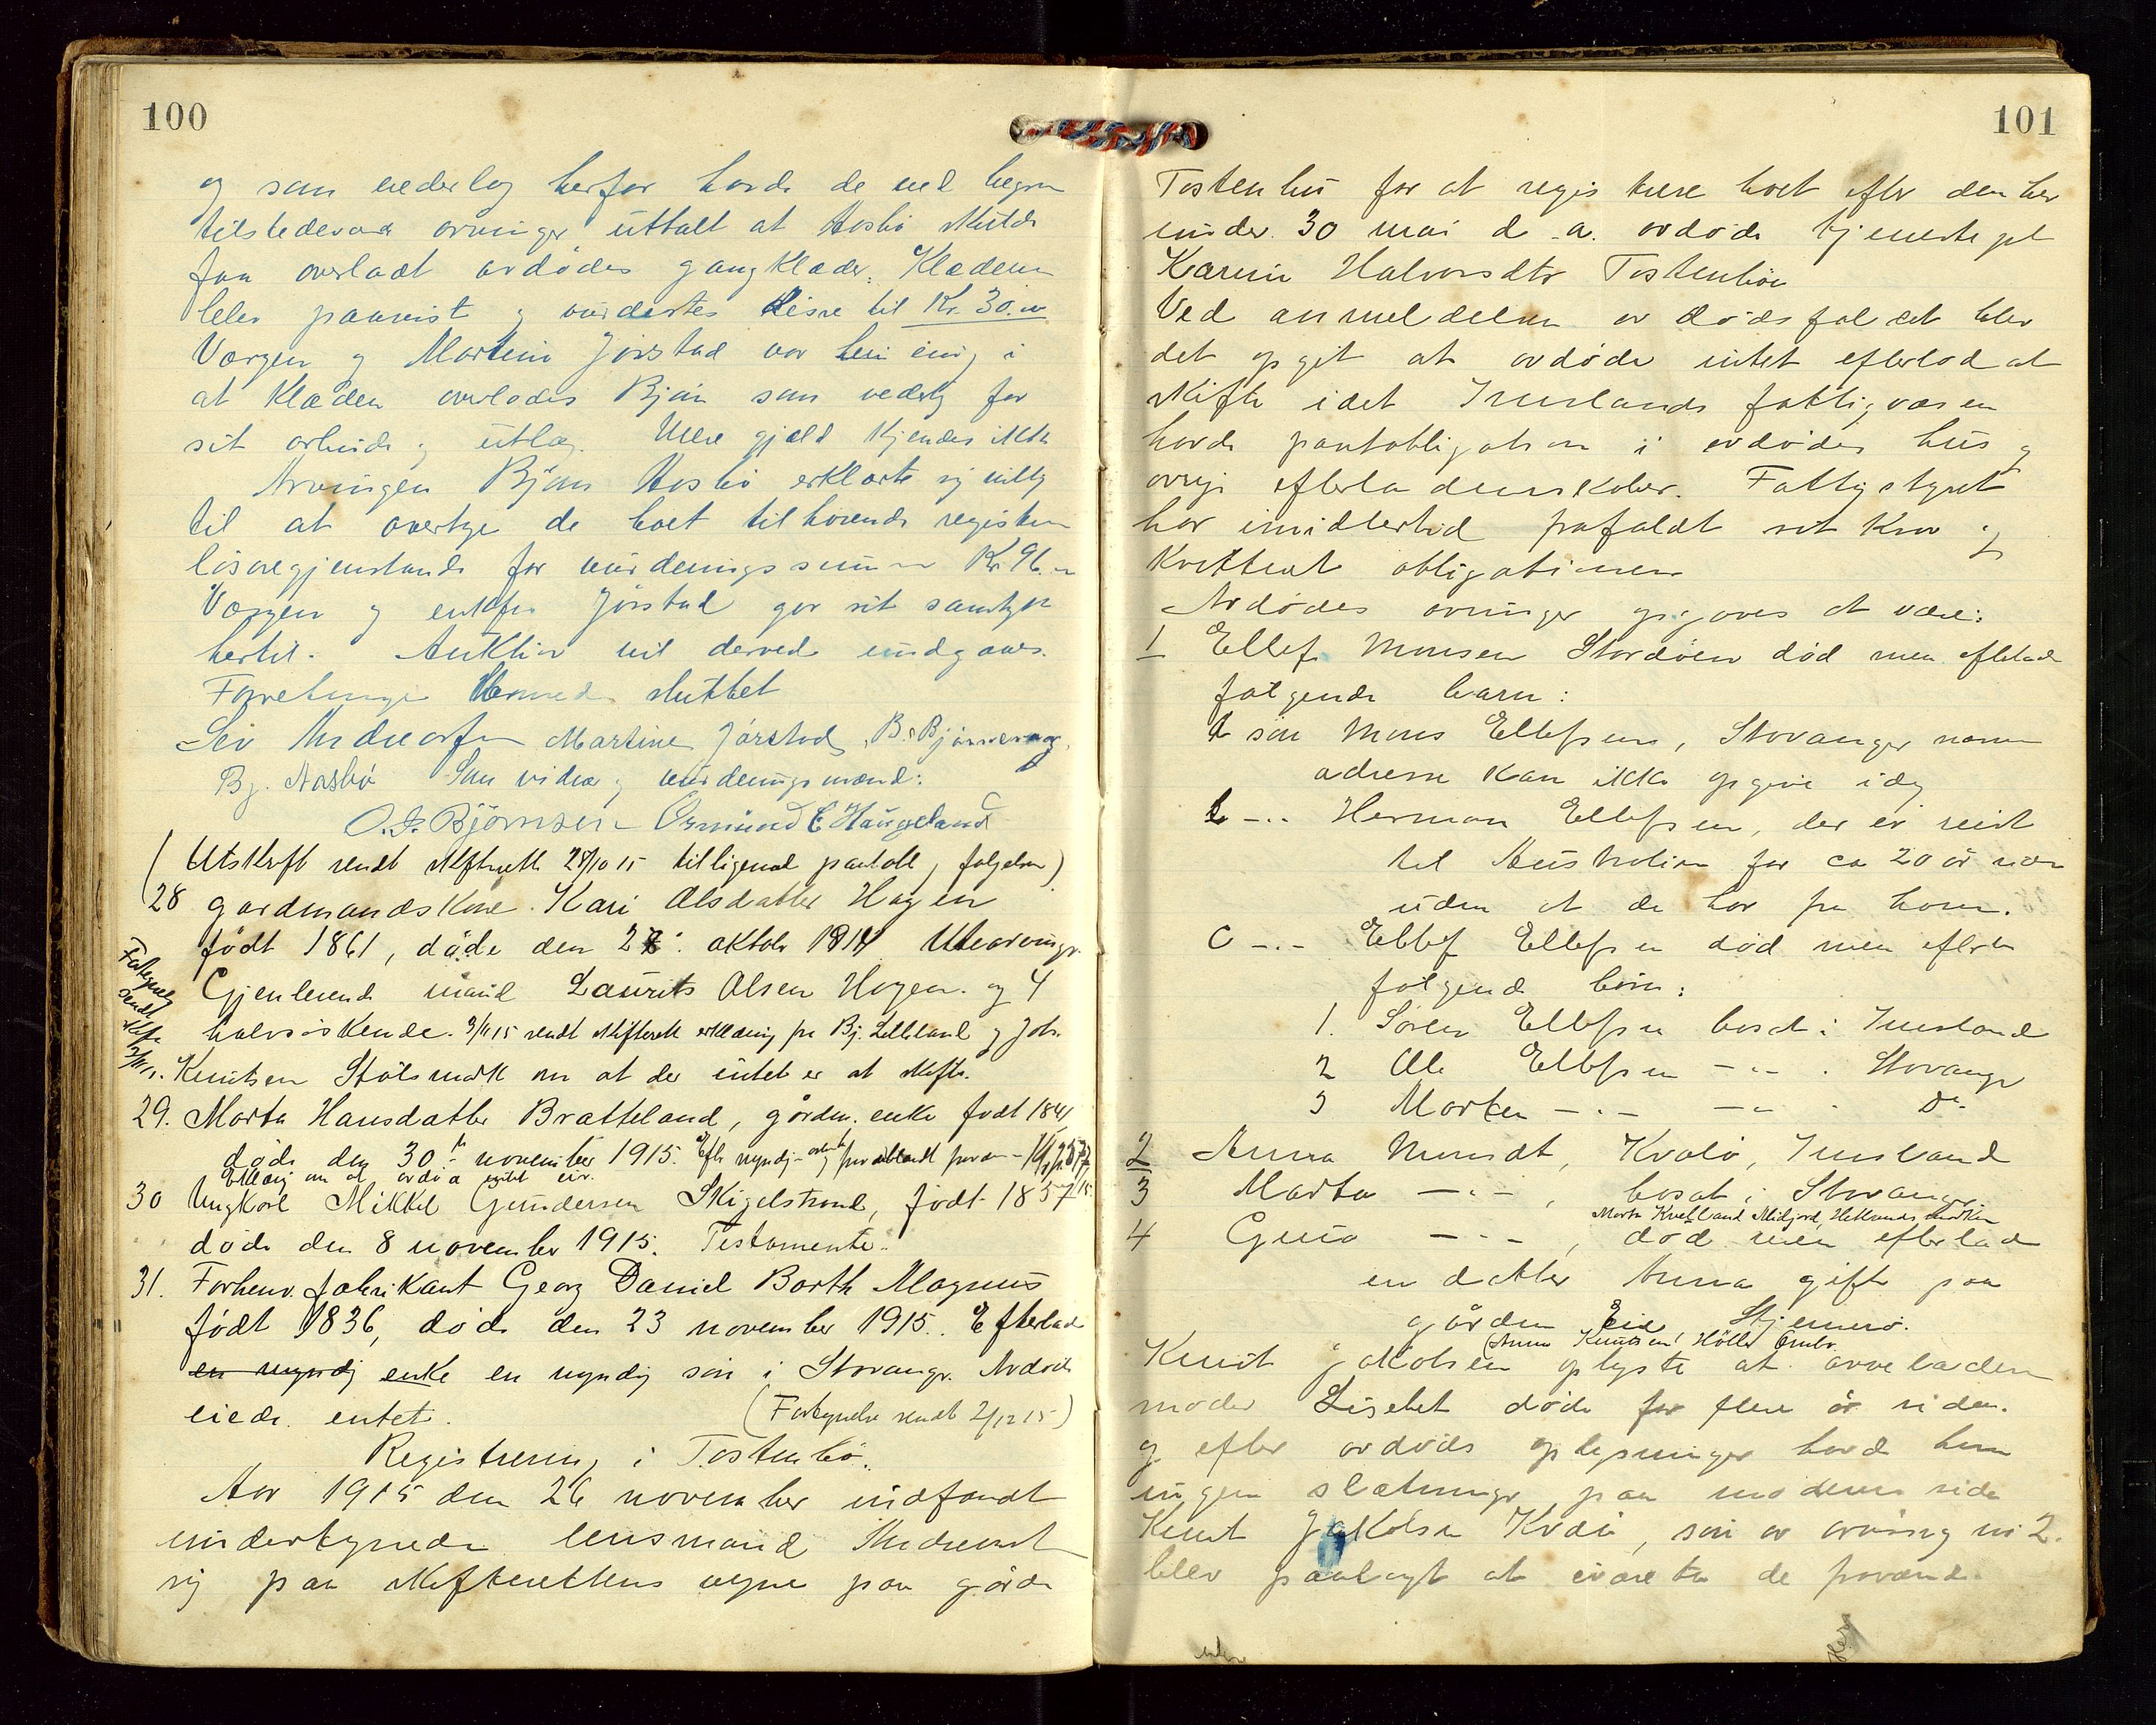 100
og som vederlag herfor havde de ved begra
tilstedeværende arvinger uttalt at Aosbö skulde
faa overladt avdödes gangklæder. Klæderne
blev paavist og vurdertes disse til Kr. 30.00
Værgen og Martine Jörstad var heri enig i
at klæderne overlodes Björn som vederlag for
sit arbeide og utlæg. Mere gjæld kjendes ikke
Arvingen Björn Aosbö erklærte sig villig
til at overtage de boet tilhörende registrerte
lösöregjenstande for vurderingssummen Kr 96.00
Værgen og enkefru Jörstad gav sit samtykke
hertil. Auktion vil derved undgaaes.
Forretningen dermed sluttet
Martine Jörstad, B. Bjönnernag,
Bj. Aasbö Som vidner og vurderingsmænd:
O. S. Björnsen Osmund E Haugeland
(Utskrift sendt skifteretten 28/10 15 tilligemed pantatt. fölgelser)
28 gaardmandskone Kari Olsdatter Hagen
född 1861, döde den 27. oktober 1914 Utearvinger
Gjenlevende mand Laurits Olsen Hagen. og 4
halvsöskende. 3/11 15 sendt skifteret erklæring fra Bj. Lelleland og Joh.
Knutsen Stölsmark om at der intet er at skifte.
Forkyndelse sendt skifte 3/11 15.
29. Marta Hansdatter Bratteland, gårdm. enke födt 1841
döde den 30te november 1915. Efter myndig
Erklæring om at avdöde intet eier.
30 Ungkarl Mikkel Gundersen Skigelstrand, födt 1857
döde den 8 november 1915. Testamente.
31. Forhenv. fabrikant Georg Daniel Barth Magnus
födt 1836, döde den 23 november 1915. Efterlod
en myndig enke en myndig sön i Stavanger. Avdöde
eiede intet. (Forkyndelse sendt 2/12 15)
Registrering i Tostenbö.
Aar 1915 den 26 november indfandt
undertegnede lensmand Andreassen
sig paa skifterettens vegne paa gården
101
Tostenbö for at registrere boet efter den her
under 30 mai d. a. avdöde tjenestepike
Karine Halvorsdtr Tostenbön
Ved anmeldelsen av dödsfaldet blev
det opgit at avdöde intet efterlod at
skifte idet Imslands fattigvæsen
havde pantobligation i avdödes hus og
övrige efterladenskaber. Fattigstyret
har imidlertid frafaldt sit krav og
kvittert obligationen
Avdödes arvinger opgaves at være:
1 Ellef Monsen Stordöen död men efterlod
fölgende barn:
a sön Mons Ellefsen, Stavanger nærm
adresse kan ikke opgives idag
b -"- Herman Ellefsen, der er reist
til Australien for ca 20 år siden
uden at de har fra ham.
c -"- Ellef Ellefsen död men efterlod
fölgende börn:
1. Sören Ellefsen bosat i Imsland
2 Ole Ellefsen -"- . Stavanger
3 Morten -"- -"- . Do.
2 Anna Monsdt, Kvalö, Imsland
3 Marta -"- , bosat i Stavanger.
Marta Kvelland Midjord, Hetlands marken
4 Guro -"- , död men efterlod
en datter Anna gift paa
gården Eie Stjernerö.
(Anna Knutsen Hölle Ombo
Knut Jakobsen oplyste at arveladers
moder Lisebet döde for flere år siden.
og efter avdödes oplysninger havde hun
ingen slægtninger paa moderens side
Knut Jakobsen Kvalö, sön av arving nr 2.
blev paalagt at ivareta de fraværende